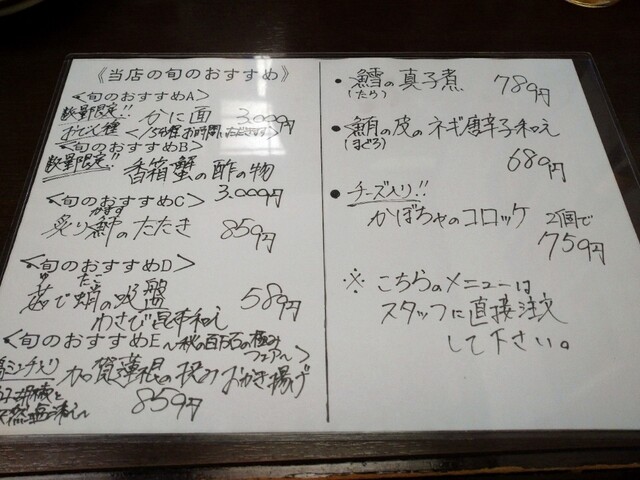 《当店の旬のおすすめ》
<旬のおすすめA>
数量限定!! かに面 3,000円
おでん種 <15分程お時間いただきます>
<旬のおすすめB>
数量限定!! 香箱蟹の酢の物
3,000円
<旬のおすすめC>
炙り鰤のたたき 859円
<旬のおすすめD>
ゆ たこ
茹で蛸の吸盤 589円
わさび昆布和え
<旬のおすすめE~秋の百万石の極み
フェア~>
加賀蓮根の挟みおかき揚げ
859円
• 鱈の真子煮 789円
(たら)
• 鮪の皮のネギ唐辛子和え
(まぐろ)
689円
• チーズ入り!!
かぼちゃのコロッケ 2個で
759円
※ こちらのメニューは
スタッフに直接注文
して下さい。